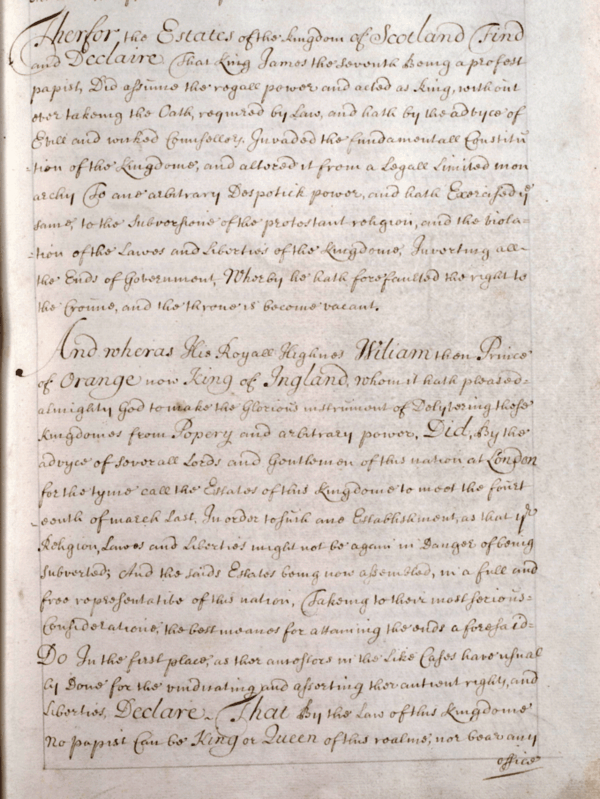 Therfor the Estates of the kingdom of Scotland Find
and Declaire That King James the Seventh Being a profest
papist, Did assume the regall power and acted as King, without
ever takeing the Oath, required by Law, and hath by the advyce of
Evill and wicked Councellors, Invaded the fundamentall Constitu
tion of the Kingdome, and altered it from a Legall Limited mon
archy To ane arbitrary Despotick power, and hath Exercised ye
same, to the Subversione of the protestant religion, and the viola-
-tion of the Lawes and Liberties of the Kingdome, Inverting all
the Ends of Government, Wherby he hath forefaulted the right to
the Croune, and the throne is become vacant.
And wheras His Royall Highnes William then Prince
of Orange now King of Ingland, whom it hath pleased
almighty God to make the Glorious instrument of Delyvering these
Kingdomes from Popery and arbitrary power, Did, By the
advyce of severall Lords and Gentlemen of this nation at London
for the tyme call the Estates of this Kingdome to meet the fourt
eenth of march Last, In order to such ane Establishment, as that yr
Religion, Lawes and Liberties might not be again in Danger of being
subverted; And the saids Estates being now assembled, in a full and
free representative of this nation, Takeing to their most serious
Consideratione, the best meanes for attaining the ends aforesaid
Do In the first place, as ther ancestors in the Like Cases have usual
ly Done for the vindicating and asserting ther antient rights, and
Liberties, Declare. That By the Law of this Kingdome
No papist Can be King or Queen of this realme, nor bear any
office